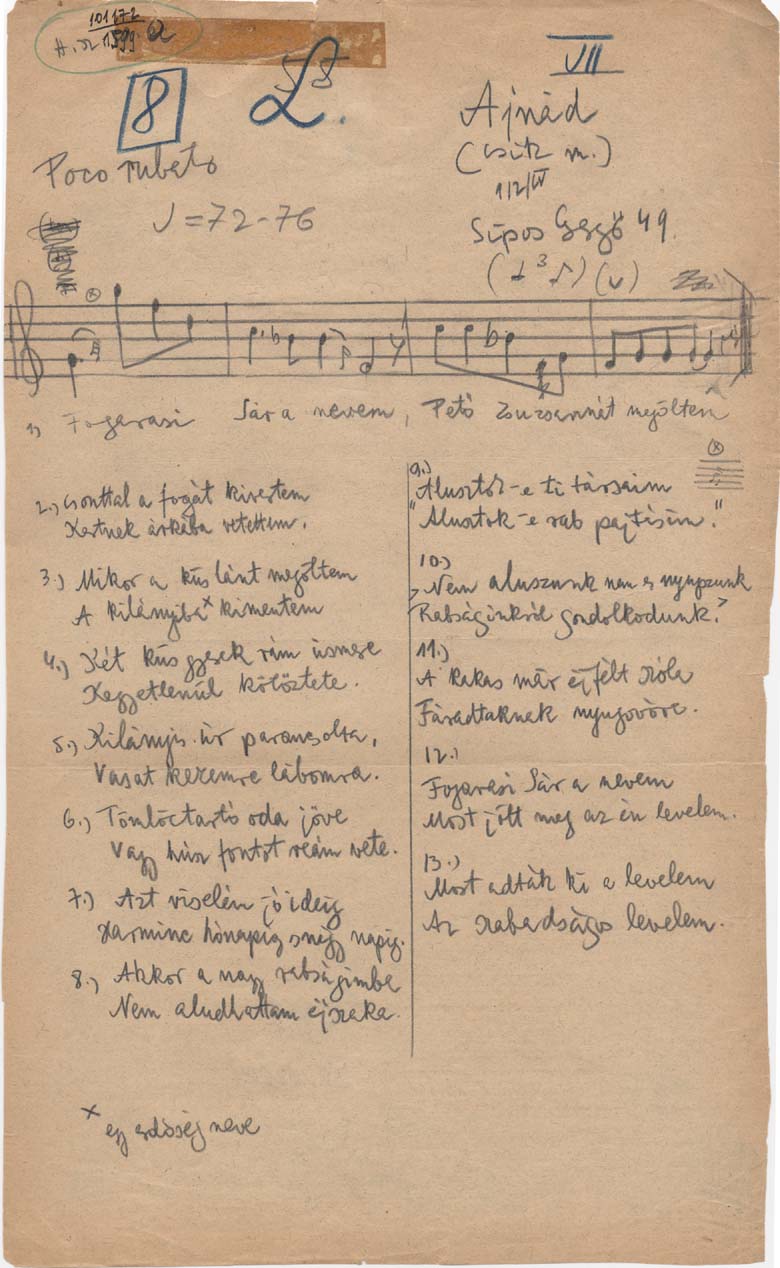 101172
8
VII
Ajnád
(Csík m.)
Poco rubato
=72-76
Sípos Gergő 49.
1) Fogarasi Sára nevem, Pető Zsuzsannát megöltem
2.) Csonttal a fogát kivertem
Kertnek árkába vetettem.
3.) Mikor a küs lánt megöltem
A Kilányiba x kimentem
4.) Két küs gyerek rám üsmere
Kegyetlenül kötöztete.
5.) Kilányis úr parancsolta,
Vasat kezemre lábomra.
6.) Tömlöctartó oda jöve
Vagy húsz fontot reám vete.
7.) Azt viselém jó ideig
Harminc hónapig s négy napig.
8.) Akkor a nagy rabságimba
Nem aludhattam éjszaka.
9.) Alusztok-e ti társaim
"Alusztok-e rab pajtásim."
10.)
"Nem aluszunk nem es nyugszunk
Rabságinkról gondolkodunk."
11.)
A kakas már éjfélt szóla
Fáradtaknak nyugovóra.
12.)
Fogarasi Sára nevem
Most jött meg az én levelem.
13.)
Most adták ki a levelem
Az szabadságos levelem.
x egy erdőség neve